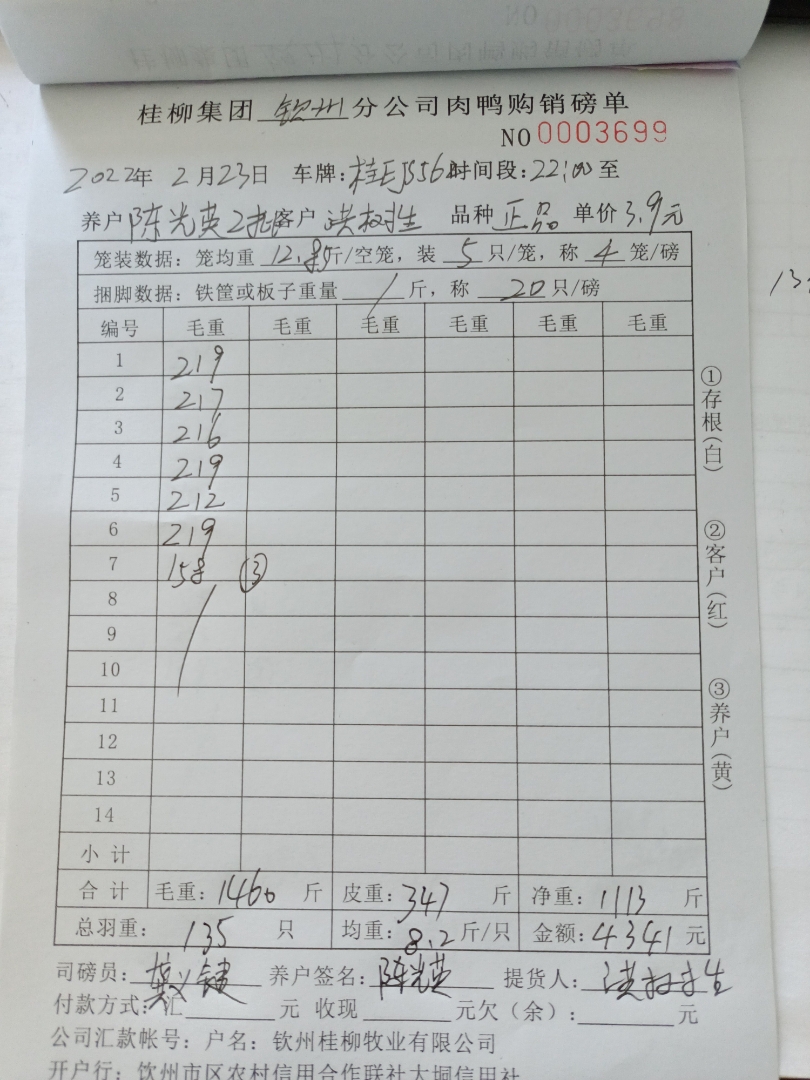 桂柳集团 钦州 分公司肉鸭购销磅单
NO 0003699
2022年 2月23日 车牌:桂EJ556 时间段:22:00至
养户 陈光英2批 客户 洪树生 品种 正品 单价 3.9元
笼装数据:笼均重 12.85斤/空笼,装 5 只/笼,称 4 笼/磅
捆脚数据:铁筐或板子重量 / 斤,称 20 只/磅
编号 毛重 毛重 毛重 毛重 毛重 毛重
1 219
2 217
3 216
4 219
5 212
6 219
7 158 ③
8
9
10
11
12
13
14
小计
合计 毛重:1460 斤 皮重:347 斤 净重:1113 斤
总羽重: 135 只 均重:8.2斤/只 金额:4341元
司磅员: 养户签名:陈光英 提货人:洪树生
付款方式:汇 元 收现 元欠(余): 元
公司汇款帐号:户名:钦州桂柳牧业有限公司
开户行:钦州市区农村信用合作联社大垌信用社
①存根(白)
②客户(红)
③养户(黄)